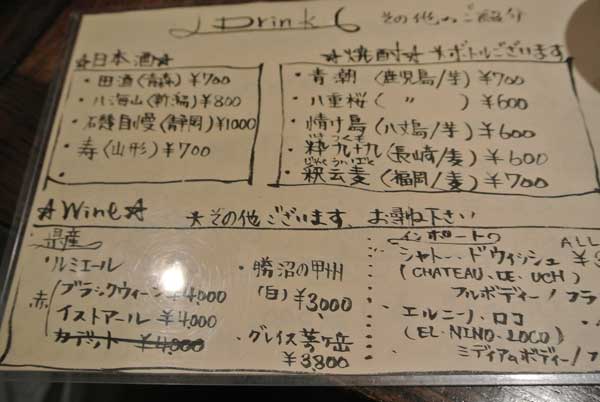 Drink
その他のご紹介
☆日本酒☆
・田酒(青森)¥700
・八海山(新潟)¥800
・石鎚自慢(静岡)¥1000
・寿(山形)¥700
☆焼酎☆ *ボトルございます
・青潮(鹿児島/芋)¥700
・八重桜( 〃 )¥600
・情け島(八丈島/芋)¥600
・粋 九十九(長崎/麦)¥600
・釈云麦(福岡/麦)¥700
☆Wine☆
*その他ございます、お尋ね下さい
県産
・ルミエール
赤
ブラッククィーン ¥4,000
イストアール ¥4,000
カデット ¥4,000
・勝沼の甲州
(白) ¥3000
・グレイス茅ヶ岳
¥3,800
インポートの
ALL
・シャトー・ドウィッシュ
(CHATEAU.DE.UCH)
フルボディー/フラ
・エルニーノ・ロコ
(EL.NINO.LOCO)
ミディアムボディー/フ